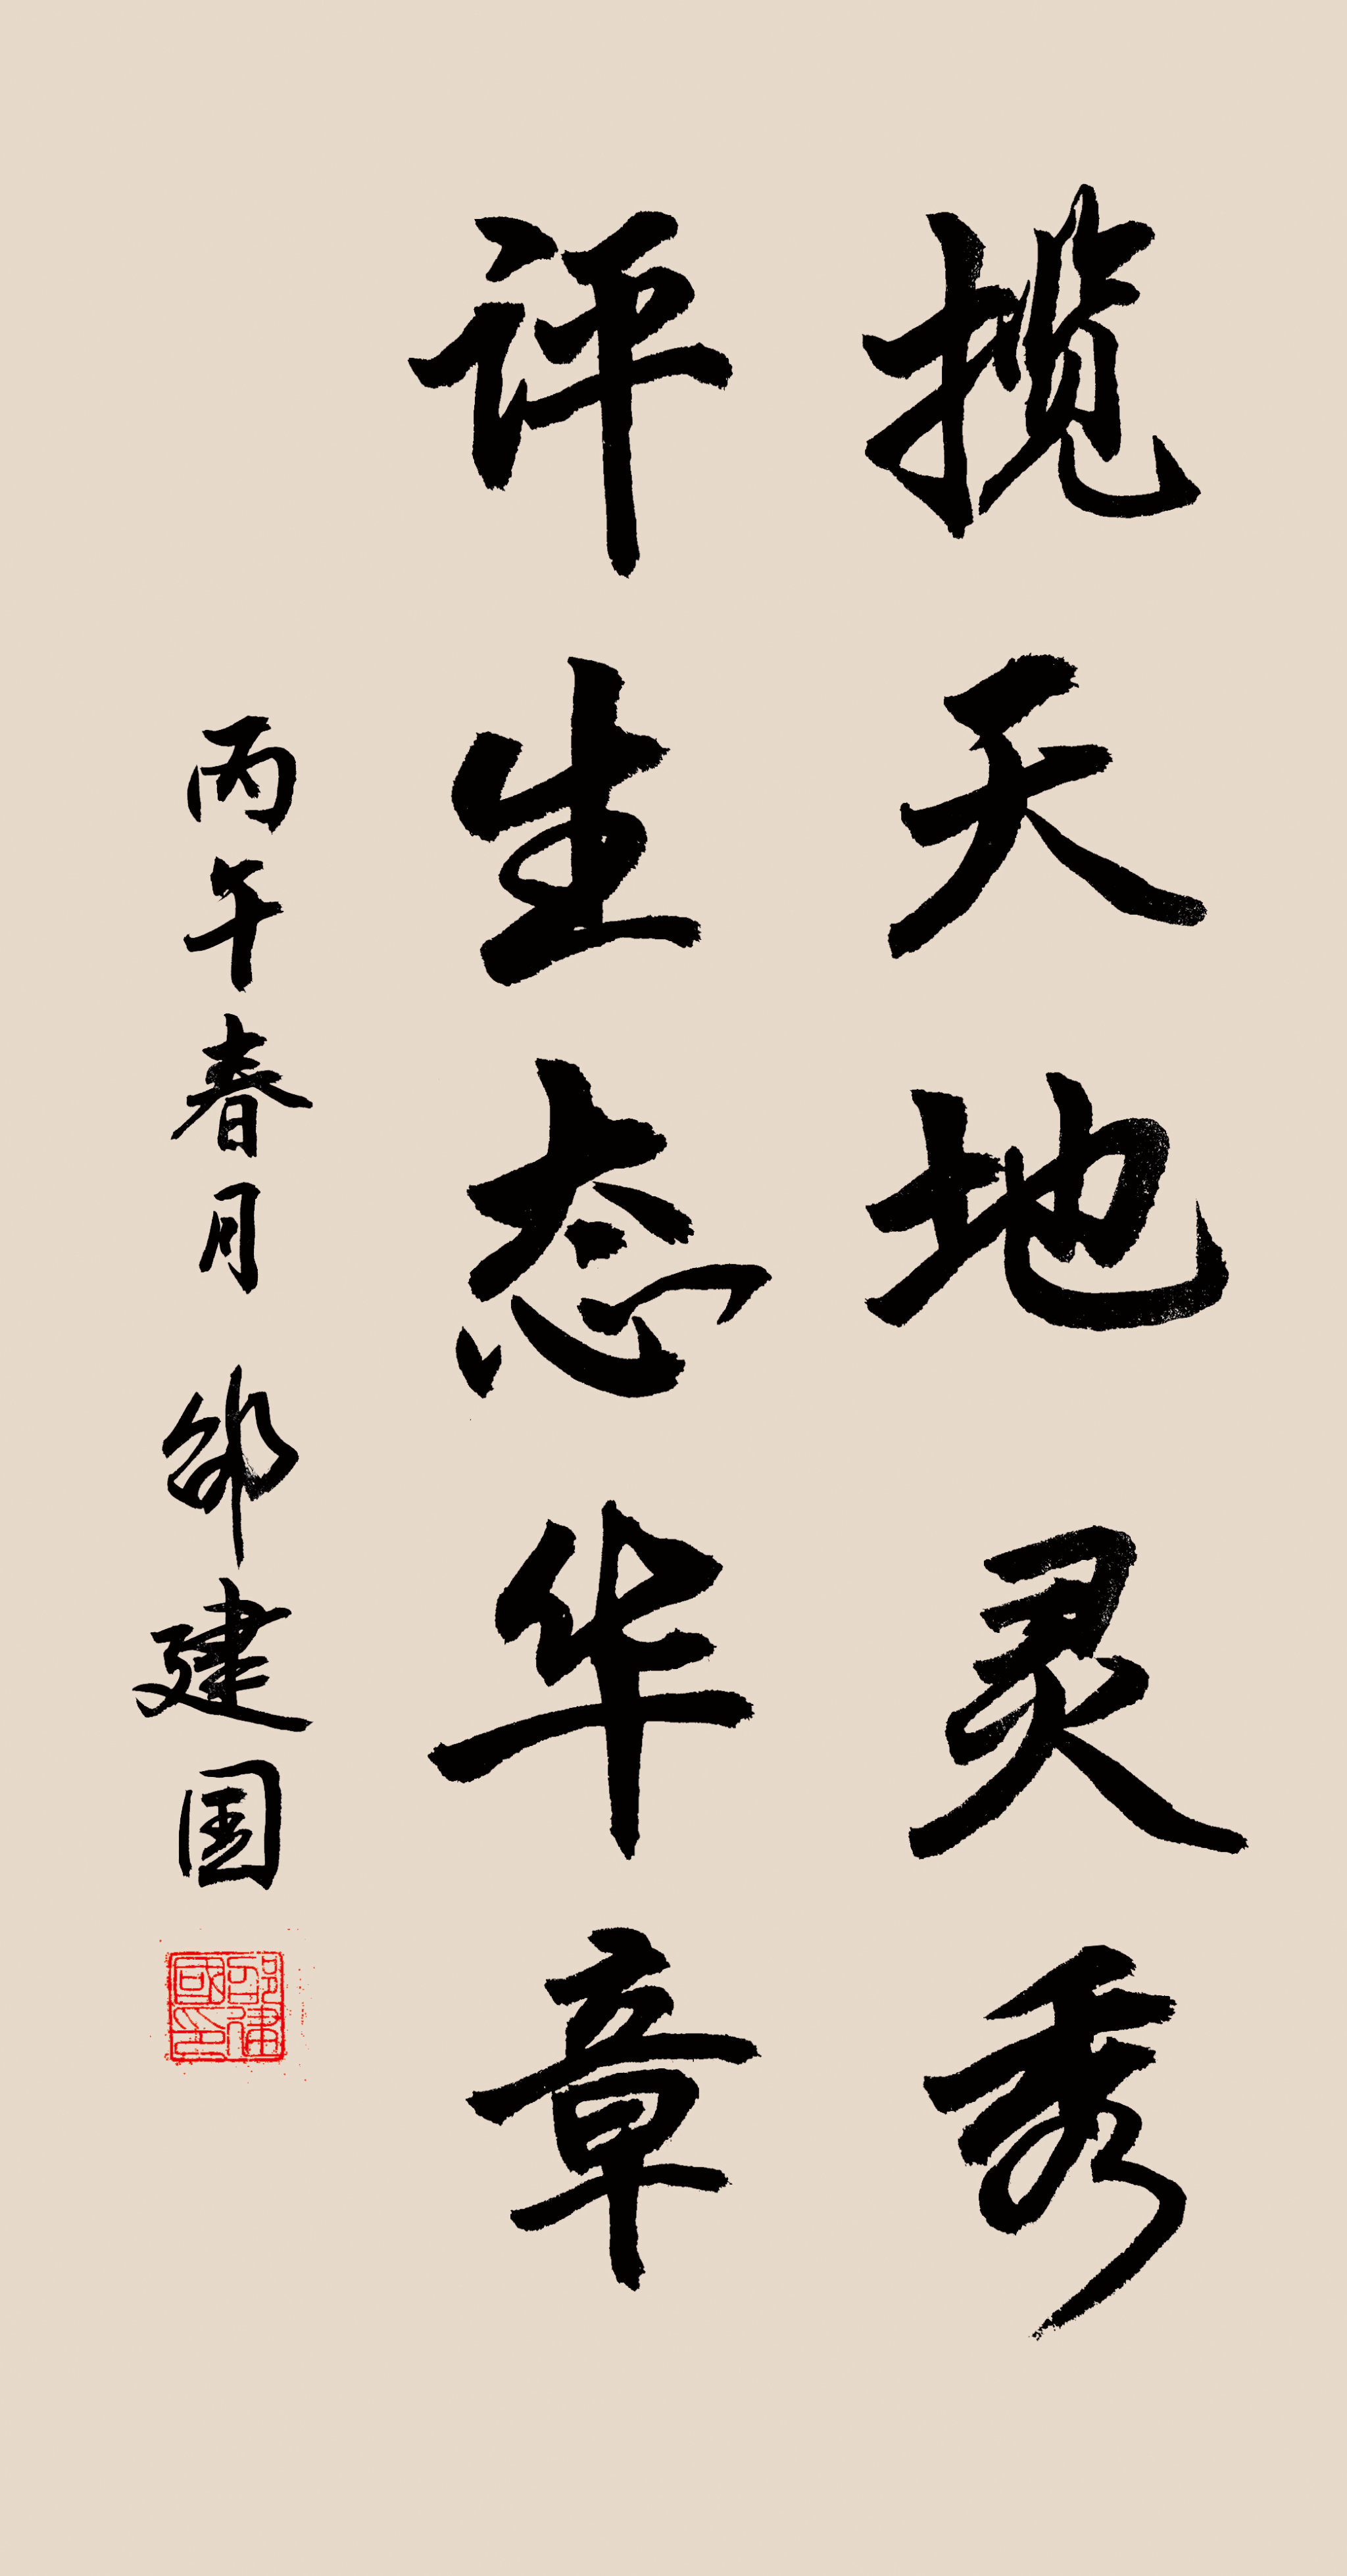 揽天地灵秀
评生态华章
丙午春月 邵建国
邵建國印